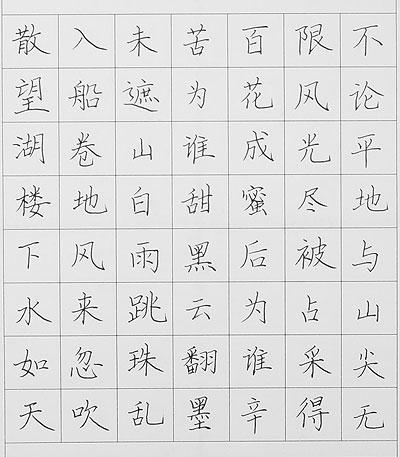 不论平地与山尖无
限风光尽被占采得
百花成蜜后为谁辛
苦为谁甜黑云翻墨
未遮山白雨跳珠乱
入船卷地风来忽吹
散望湖楼下水如天